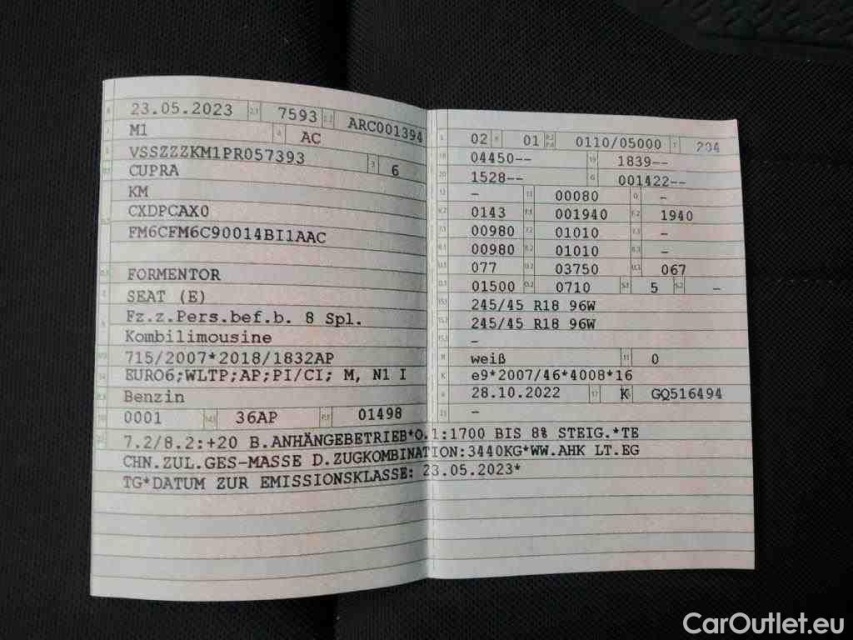 23.05.2023 7593 ARC001394
M1 AC
VSSZZZKM1PR057393 6
CUPRA
KM
CXDPCAX0
FM6CFM6C90014BI1AAC
FORMENTOR
SEAT (E)
Fz.z.Pers.bef.b. 8 Spl.
Kombilimousine
715/2007*2018/1832AP
EURO6;WLTP;AP;PI/CI; M, N1 I
Benzin
0001 36AP 01498
02 01 0110/05000 204
04450-- 1839--
1528-- 001422--
- 00080 -
0143 001940 1940
00980 01010 -
00980 01010 -
077 03750 067
01500 0710 5 -
245/45 R18 96W
245/45 R18 96W
-
weiß 0
e9*2007/46*4008*16
28.10.2022 K GQ516494
-
7.2/8.2:+20 B.ANHÄNGEBETRIEB*O.1:1700 BIS 8% STEIG.*TE
CHN.ZUL.GES-MASSE D.ZUGKOMBINATION:3440KG*WW.AHK LT.EG
TG*DATUM ZUR EMISSIONSKLASSE: 23.05.2023*
CarOutlet.eu